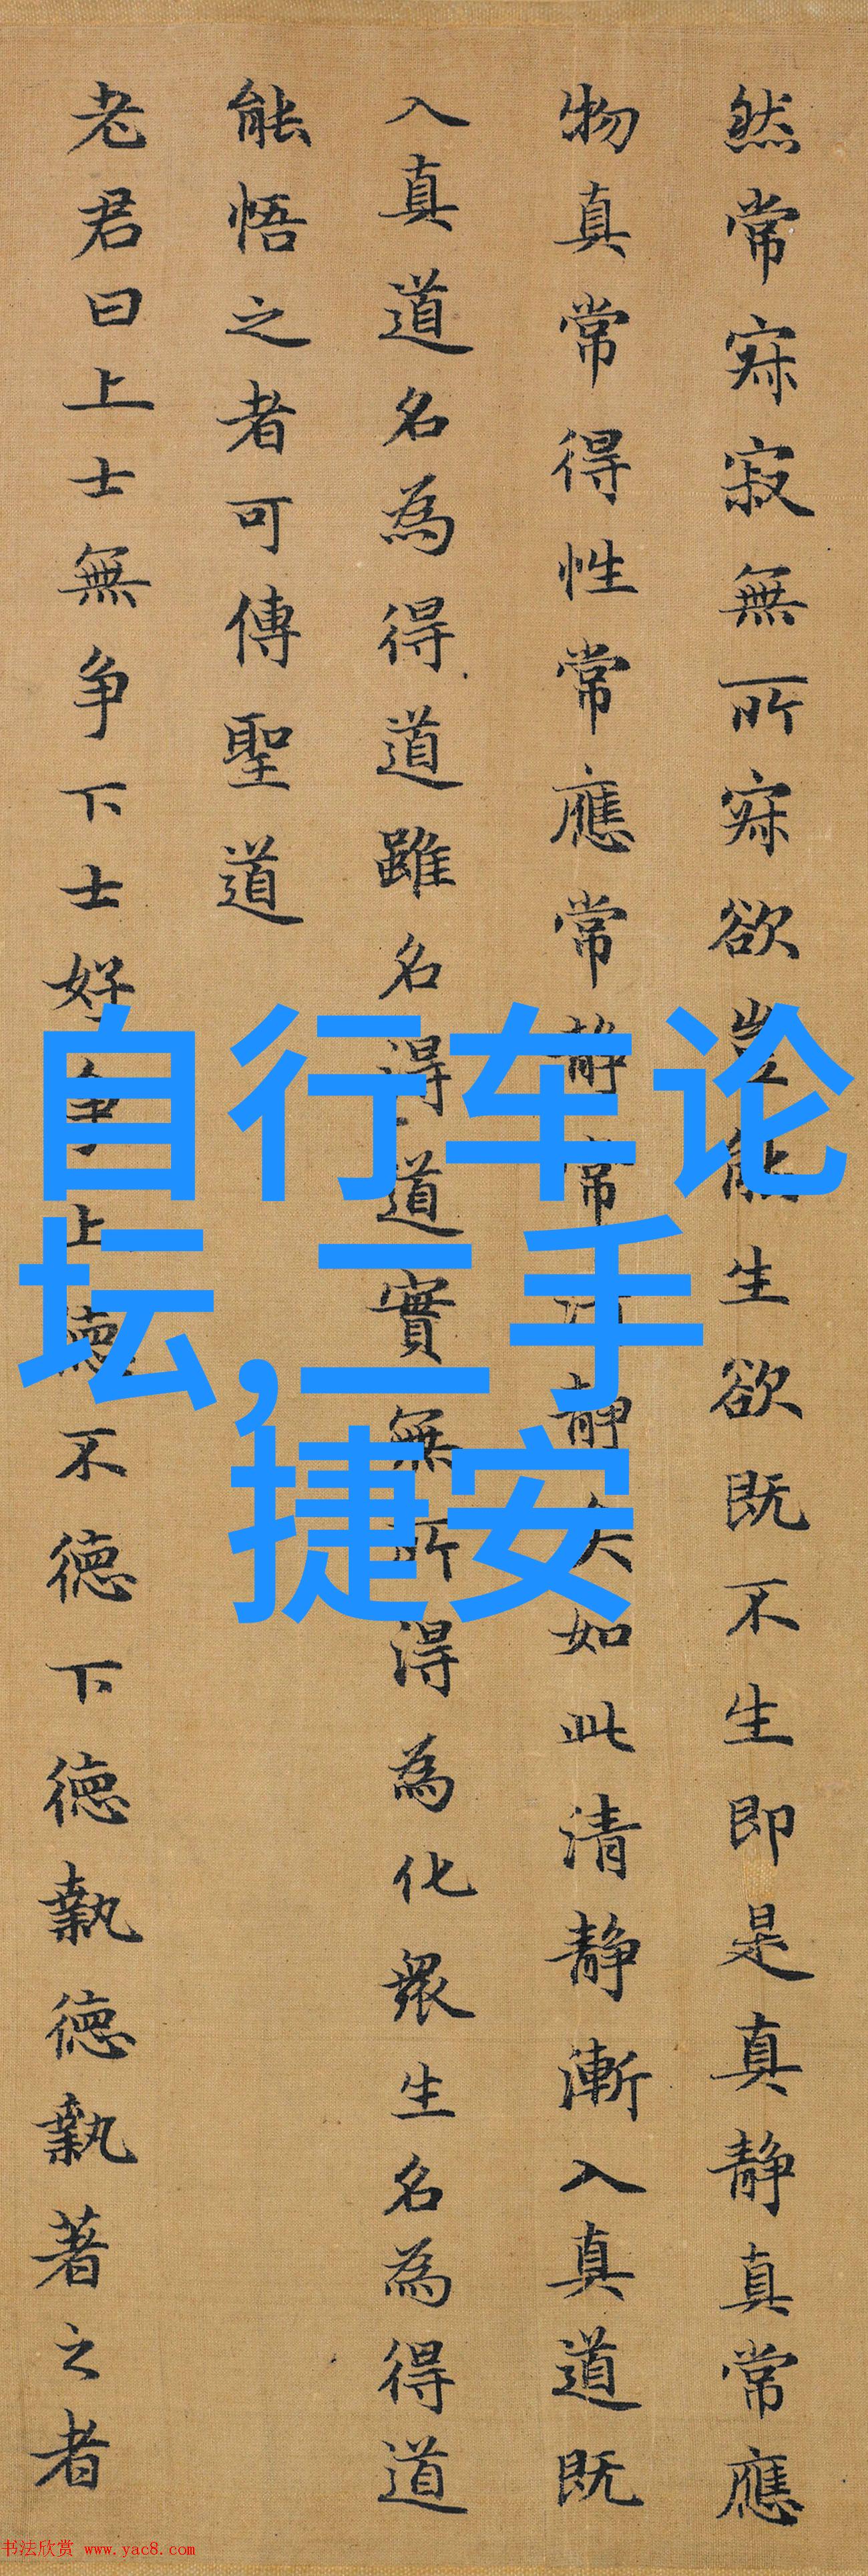 然常寂寂無所寂欲豈能生欲既不生即是真静真常應
物真常得性常應常静常清静矣如此清静漸入真道既
入真道名為得道雖名得道實無所得為化衆生名為得道
能悟之者可傳聖道
老君曰上士無争下士好争上德不德下德執德執著之者
自行车论
坛,二手
捷安
书法欣赏 www.yac8.com